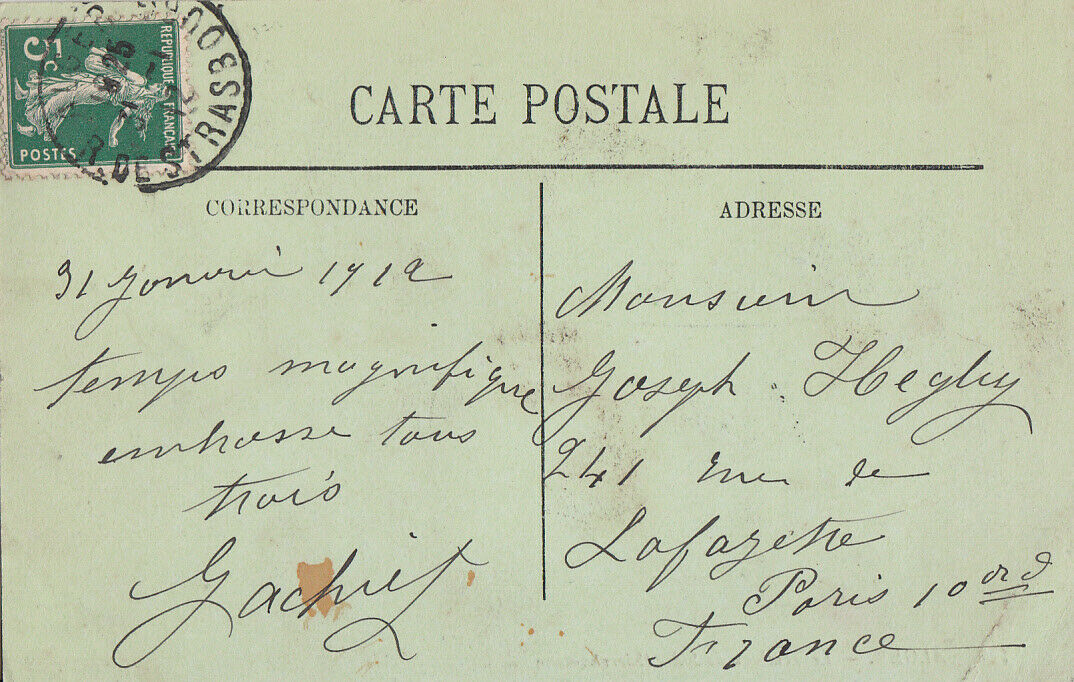 5c
REPUBLIQUE FRANCAISE
POSTES
DE STRASBOURG
CARTE POSTALE
CORRESPONDANCE
31 Janvier 1912
temps magnifique
embrasse tous
trois
Gachiet
ADRESSE
Monsieur
Joseph Hegly
241 rue de
Lafayette
Paris 10 ord
France